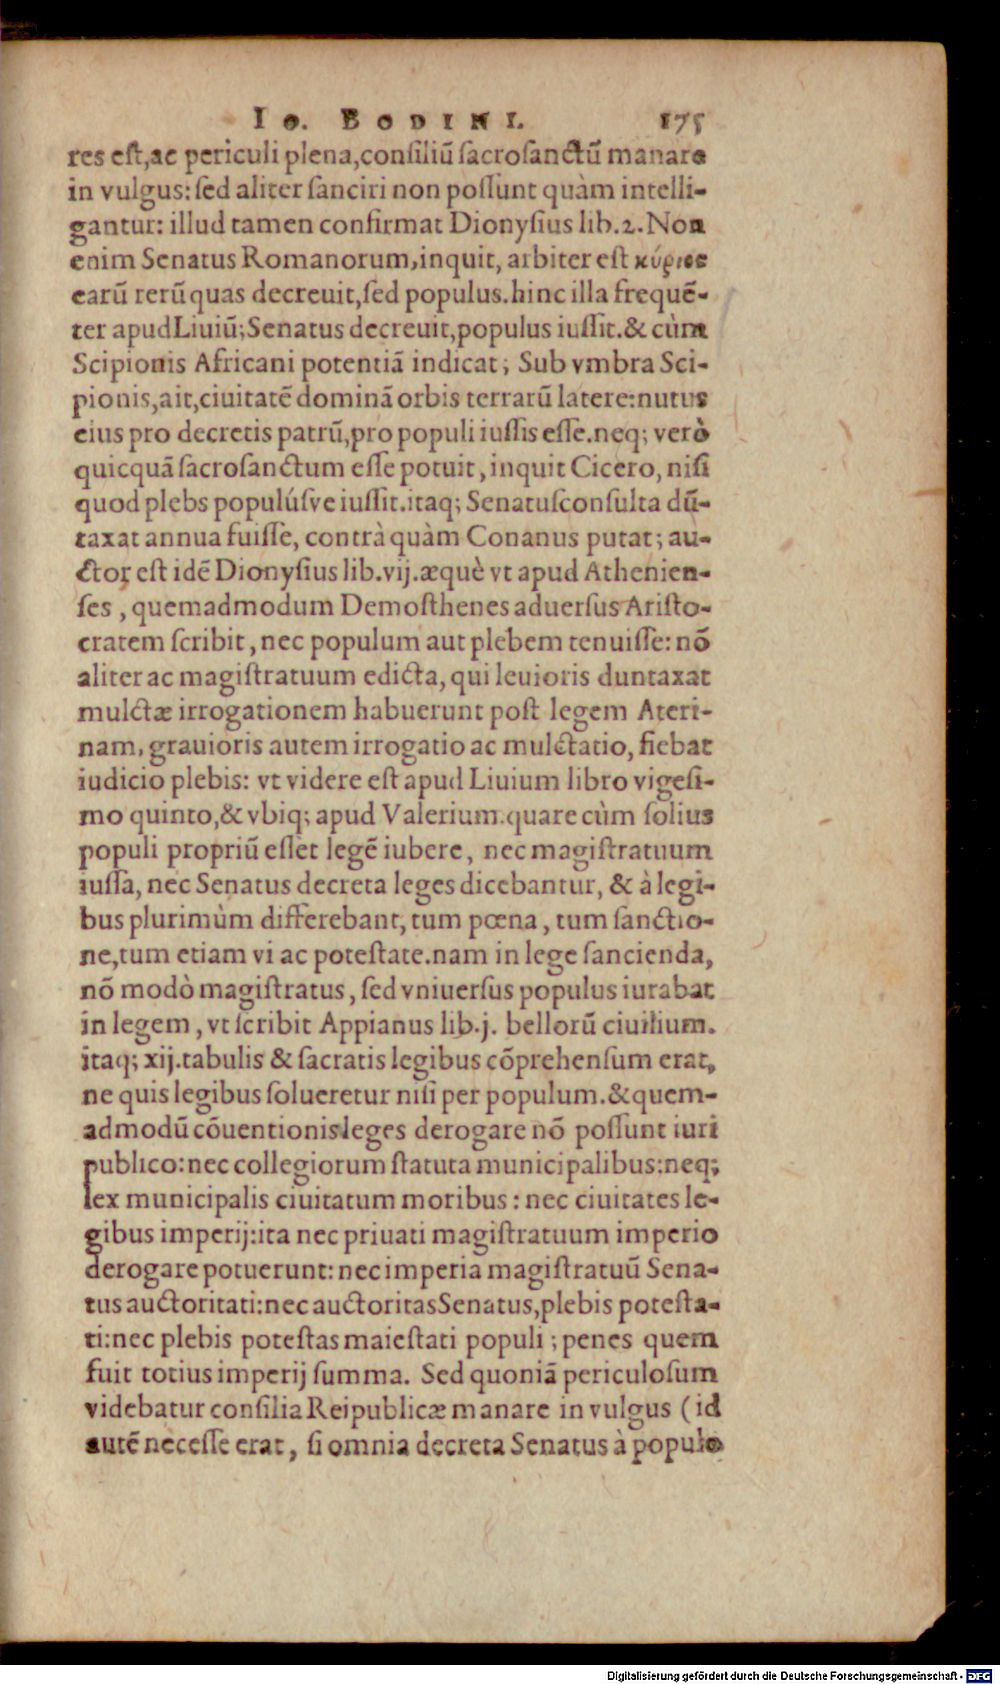 Io. BODINI. 175
res est, ac periculi plena, consiliũ sacrosanctũ manare
in vulgus: sed aliter sanciri non possunt quàm intelli-
gantur: illud tamen confirmat Dionysius lib. 2. Non
enim Senatus Romanorum, inquit, arbiter est κύριος
earũ rerũ quas decreuit, sed populus. hinc illa frequẽ-
ter apud Liuiũ; Senatus decreuit, populus iussit. & cùm
Scipionis Africani potentiã indicat; Sub vmbra Sci-
pionis, ait, ciuitatẽ dominã orbis terrarũ latere: nutus
eius pro decretis patrũ, pro populi iussis esse. neq; verò
quicquã sacrosanctum esse potuit, inquit Cicero, nisi
quod plebs populúsve iussit. itaq; Senatusconsulta dũ-
taxat annua fuisse, contrà quàm Conanus putat; au-
ctor est idẽ Dionysius lib. vij. æquè vt apud Athenien-
ses, quemadmodum Demosthenes aduersus Aristo-
cratem scribit, nec populum aut plebem tenuisse: nõ
aliter ac magistratuum edicta, qui leuioris duntaxat
mulctæ irrogationem habuerunt post legem Ateri-
nam, grauioris autem irrogatio ac mulctatio, fiebat
iudicio plebis: vt videre est apud Liuium libro vigesi-
mo quinto, & vbiq; apud Valerium. quare cùm solius
populi propriũ esset legẽ iubere, nec magistratuum
iussa, nec Senatus decreta leges dicebantur, & à legi-
bus plurimùm differebant, tum pœna, tum sanctio-
ne, tum etiam vi ac potestate. nam in lege sancienda,
nõ modò magistratus, sed vniuersus populus iurabat
in legem, vt scribit Appianus lib. j. bellorũ ciuilium.
itaq; xij. tabulis & sacratis legibus cõprehensum erat,
ne quis legibus solueretur nisi per populum. & quem-
admodũ cõuentionis leges derogare nõ possunt iuri
publico: nec collegiorum statuta municipalibus: neq;
lex municipalis ciuitatum moribus: nec ciuitates le-
gibus imperij: ita nec priuati magistratuum imperio
derogare potuerunt: nec imperia magistratuũ Sena-
tus auctoritati: nec auctoritas Senatus, plebis potesta-
ti: nec plebis potestas maiestati populi; penes quem
fuit totius imperij summa. Sed quoniã periculosum
videbatur consilia Reipublicæ manare in vulgus (id
autẽ necesse erat, si omnia decreta Senatus à populo
Digitalisierung gefördert durch die Deutsche Forschungsgemeinschaft - DFG